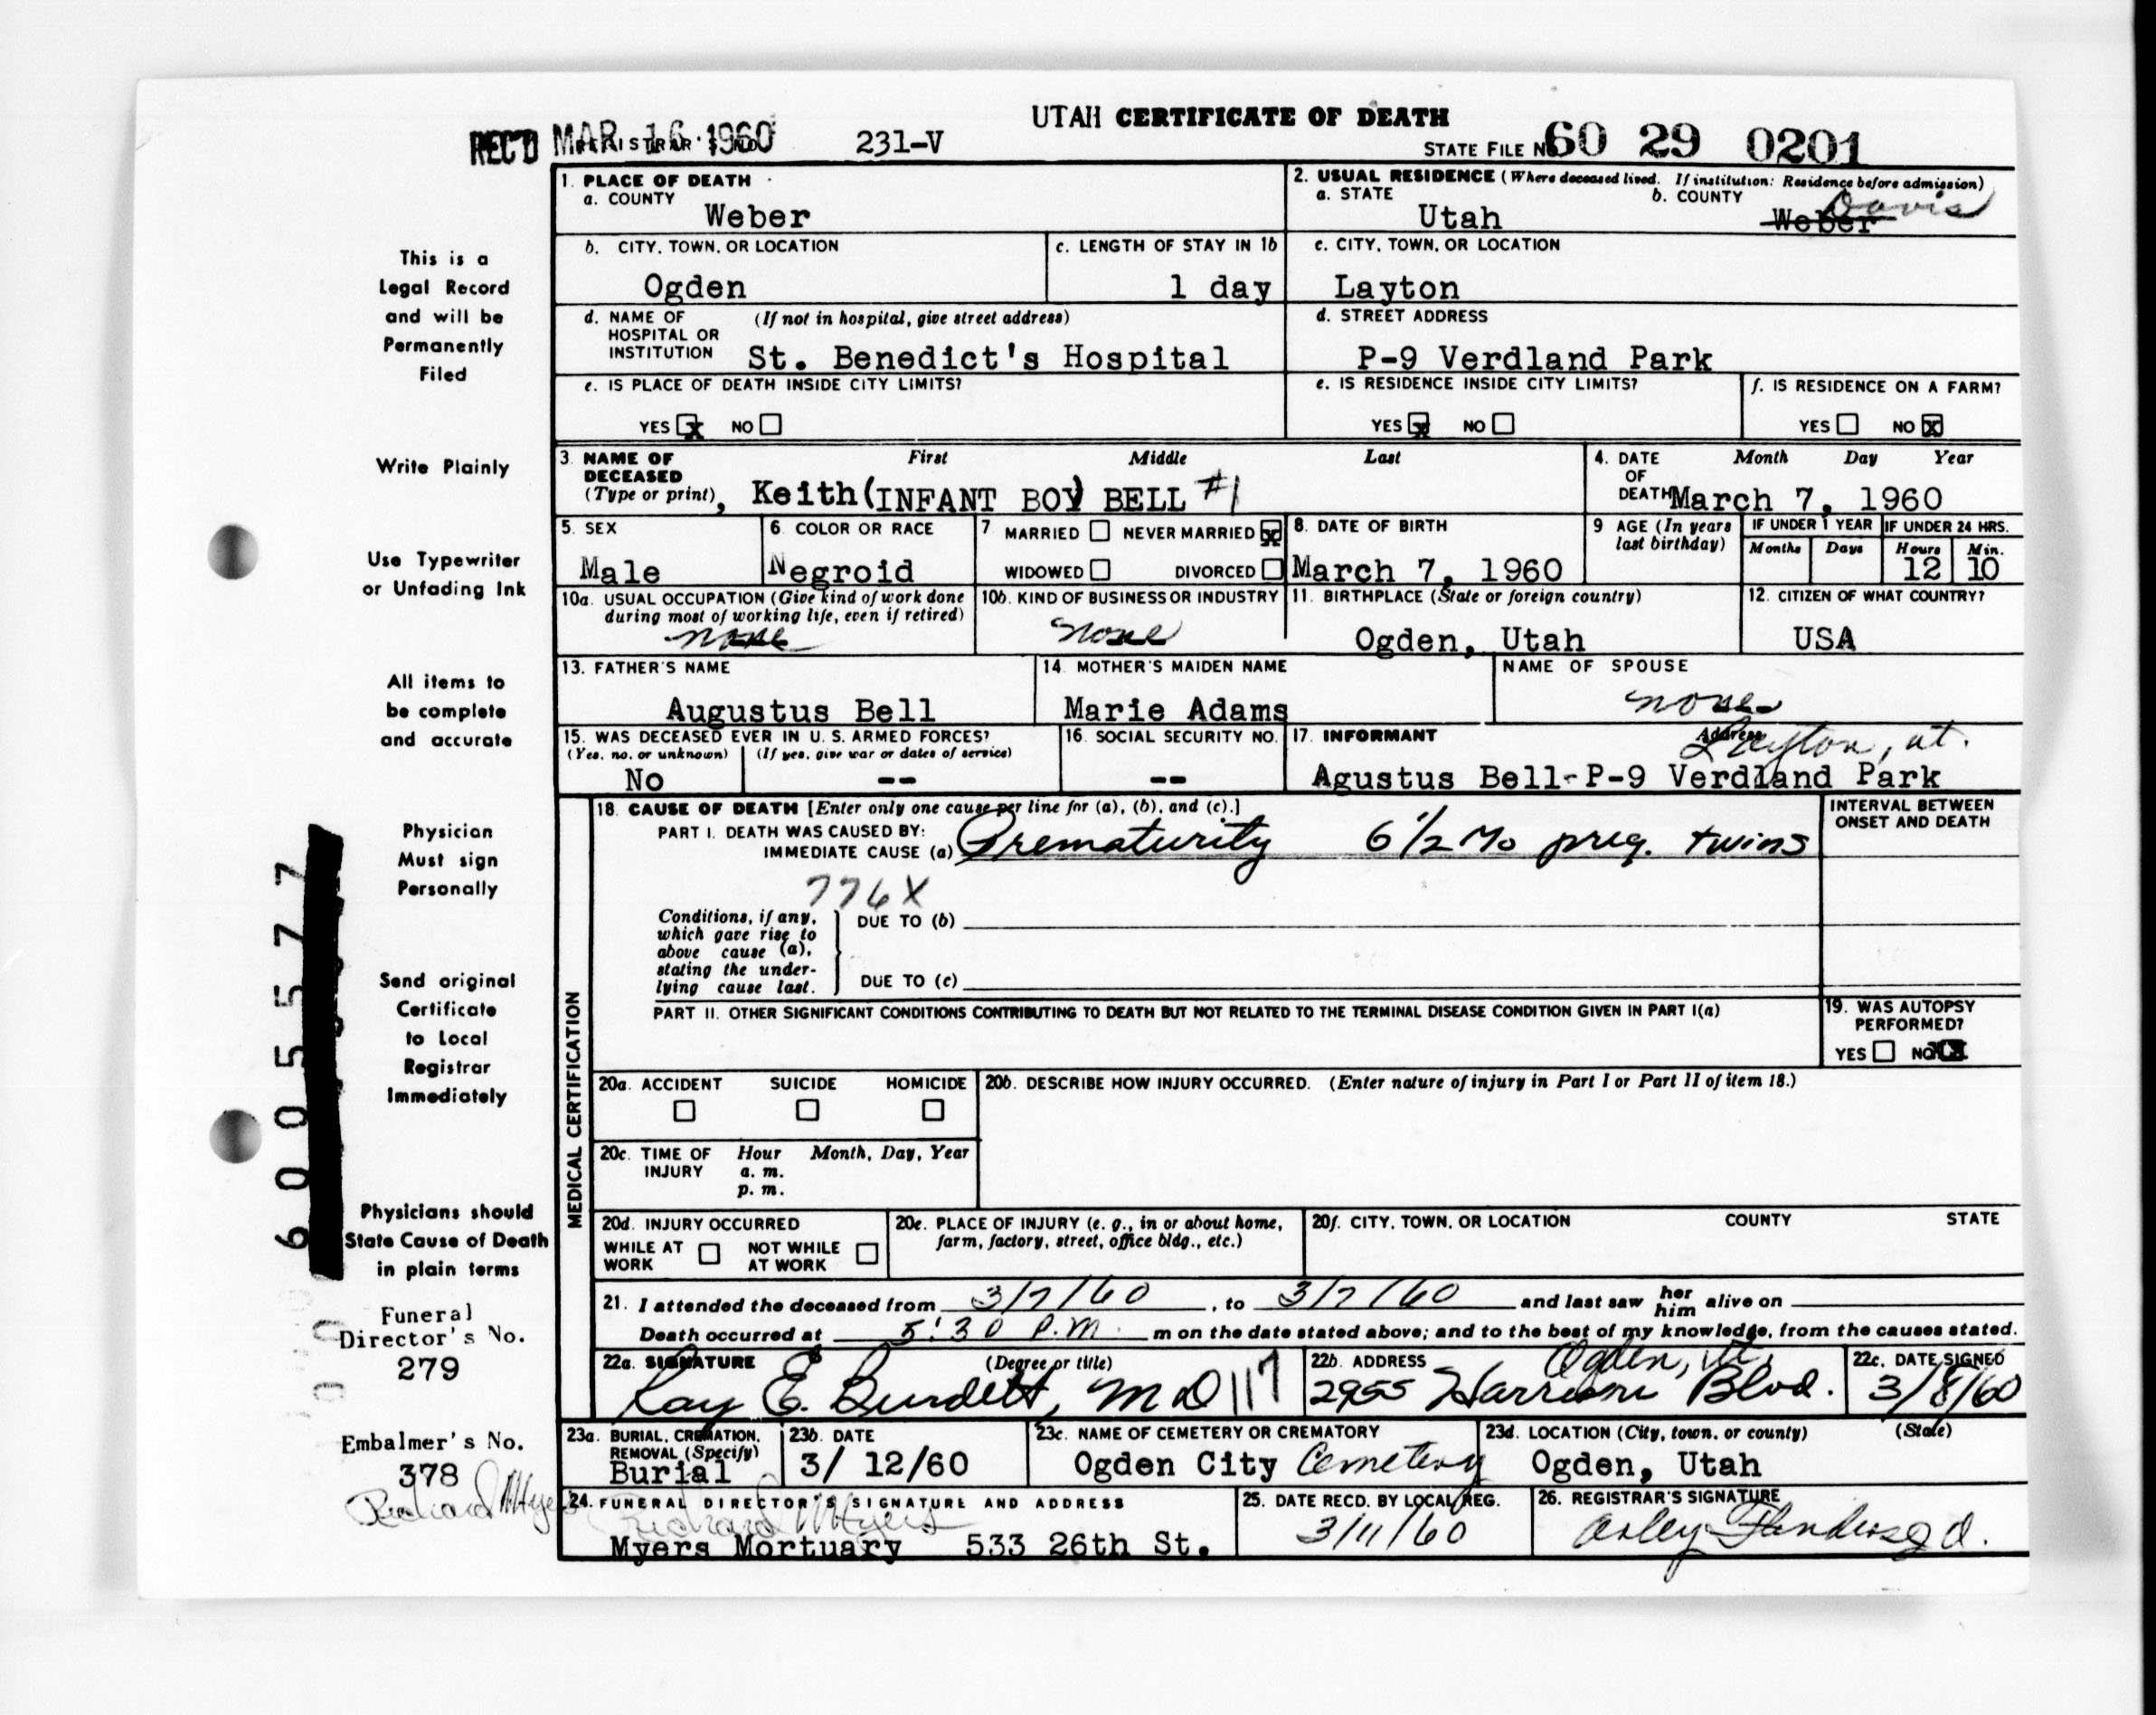 UTAH CERTIFICATE OF DEATH
REC'D MAR 16 1960 231-V STATE FILE NO. 60 29 0201
1. PLACE OF DEATH
a. COUNTY
Weber
2. USUAL RESIDENCE (Where deceased lived. If institution: Residence before admission)
a. STATE b. COUNTY
Utah Weber Davis
b. CITY, TOWN, OR LOCATION
Ogden
c. LENGTH OF STAY IN 1b
1 day
c. CITY, TOWN, OR LOCATION
Layton
d. NAME OF HOSPITAL OR INSTITUTION (If not in hospital, give street address)
St. Benedict's Hospital
d. STREET ADDRESS
P-9 Verdland Park
e. IS PLACE OF DEATH INSIDE CITY LIMITS?
YES x NO
e. IS RESIDENCE INSIDE CITY LIMITS?
YES x NO
f. IS RESIDENCE ON A FARM?
YES NO x
3. NAME OF DECEASED (Type or print) First Middle Last
Keith (INFANT BOY) BELL #1
4. DATE OF DEATH Month Day Year
March 7, 1960
5. SEX
Male
6. COLOR OR RACE
Negroid
7 MARRIED NEVER MARRIED x
WIDOWED DIVORCED
8. DATE OF BIRTH
March 7, 1960
9 AGE (In years last birthday)
IF UNDER 1 YEAR IF UNDER 24 HRS.
Months Days Hours Min.
12 10
10a. USUAL OCCUPATION (Give kind of work done during most of working life, even if retired)
none
10b. KIND OF BUSINESS OR INDUSTRY
none
11. BIRTHPLACE (State or foreign country)
Ogden, Utah
12. CITIZEN OF WHAT COUNTRY?
USA
13. FATHER'S NAME
Augustus Bell
14. MOTHER'S MAIDEN NAME
Marie Adams
NAME OF SPOUSE
none
15. WAS DECEASED EVER IN U. S. ARMED FORCES?
(Yes, no, or unknown) (If yes, give war or dates of service)
No --
16. SOCIAL SECURITY NO.
--
17. INFORMANT Address
Layton, ut.
Agustus Bell-P-9 Verdland Park
MEDICAL CERTIFICATION
18. CAUSE OF DEATH [Enter only one cause per line for (a), (b), and (c).]
PART I. DEATH WAS CAUSED BY:
IMMEDIATE CAUSE (a) Prematurity 6 1/2 Mo preg. twins
INTERVAL BETWEEN ONSET AND DEATH
776X
Conditions, if any, which gave rise to above cause (a), stating the underlying cause last.
DUE TO (b)
DUE TO (c)
PART II. OTHER SIGNIFICANT CONDITIONS CONTRIBUTING TO DEATH BUT NOT RELATED TO THE TERMINAL DISEASE CONDITION GIVEN IN PART I(a)
19. WAS AUTOPSY PERFORMED?
YES NO x
20a. ACCIDENT SUICIDE HOMICIDE
20b. DESCRIBE HOW INJURY OCCURRED. (Enter nature of injury in Part I or Part II of item 18.)
20c. TIME OF INJURY Hour Month, Day, Year
a. m.
p. m.
20d. INJURY OCCURRED
WHILE AT WORK NOT WHILE AT WORK
20e. PLACE OF INJURY (e. g., in or about home, farm, factory, street, office bldg., etc.)
20f. CITY, TOWN, OR LOCATION COUNTY STATE
21. I attended the deceased from 3/7/60, to 3/7/60 and last saw her him alive on
Death occurred at 5:30 P.M. m on the date stated above; and to the best of my knowledge, from the causes stated.
22a. SIGNATURE (Degree or title)
Ray E. Burdett, MD 117
22b. ADDRESS
Ogden, Ut.
2955 Harrison Blvd.
22c. DATE SIGNED
3/8/60
23a. BURIAL, CREMATION, REMOVAL (Specify)
Burial
23b. DATE
3/ 12/60
23c. NAME OF CEMETERY OR CREMATORY
Ogden City Cemetery
23d. LOCATION (City, town, or county) (State)
Ogden, Utah
24. FUNERAL DIRECTOR'S SIGNATURE AND ADDRESS
Richard W Myers
Myers Mortuary 533 26th St.
25. DATE RECD. BY LOCAL REG.
3/11/60
26. REGISTRAR'S SIGNATURE
This is a
Legal Record
and will be
Permanently
Filed
Write Plainly
Use Typewriter
or Unfading Ink
All items to
be complete
and accurate
Physician
Must sign
Personally
Send original
Certificate
to Local
Registrar
Immediately
Physicians should
State Cause of Death
in plain terms
Funeral
Director's No.
279
Embalmer's No.
378
Richard W Myers
6005577